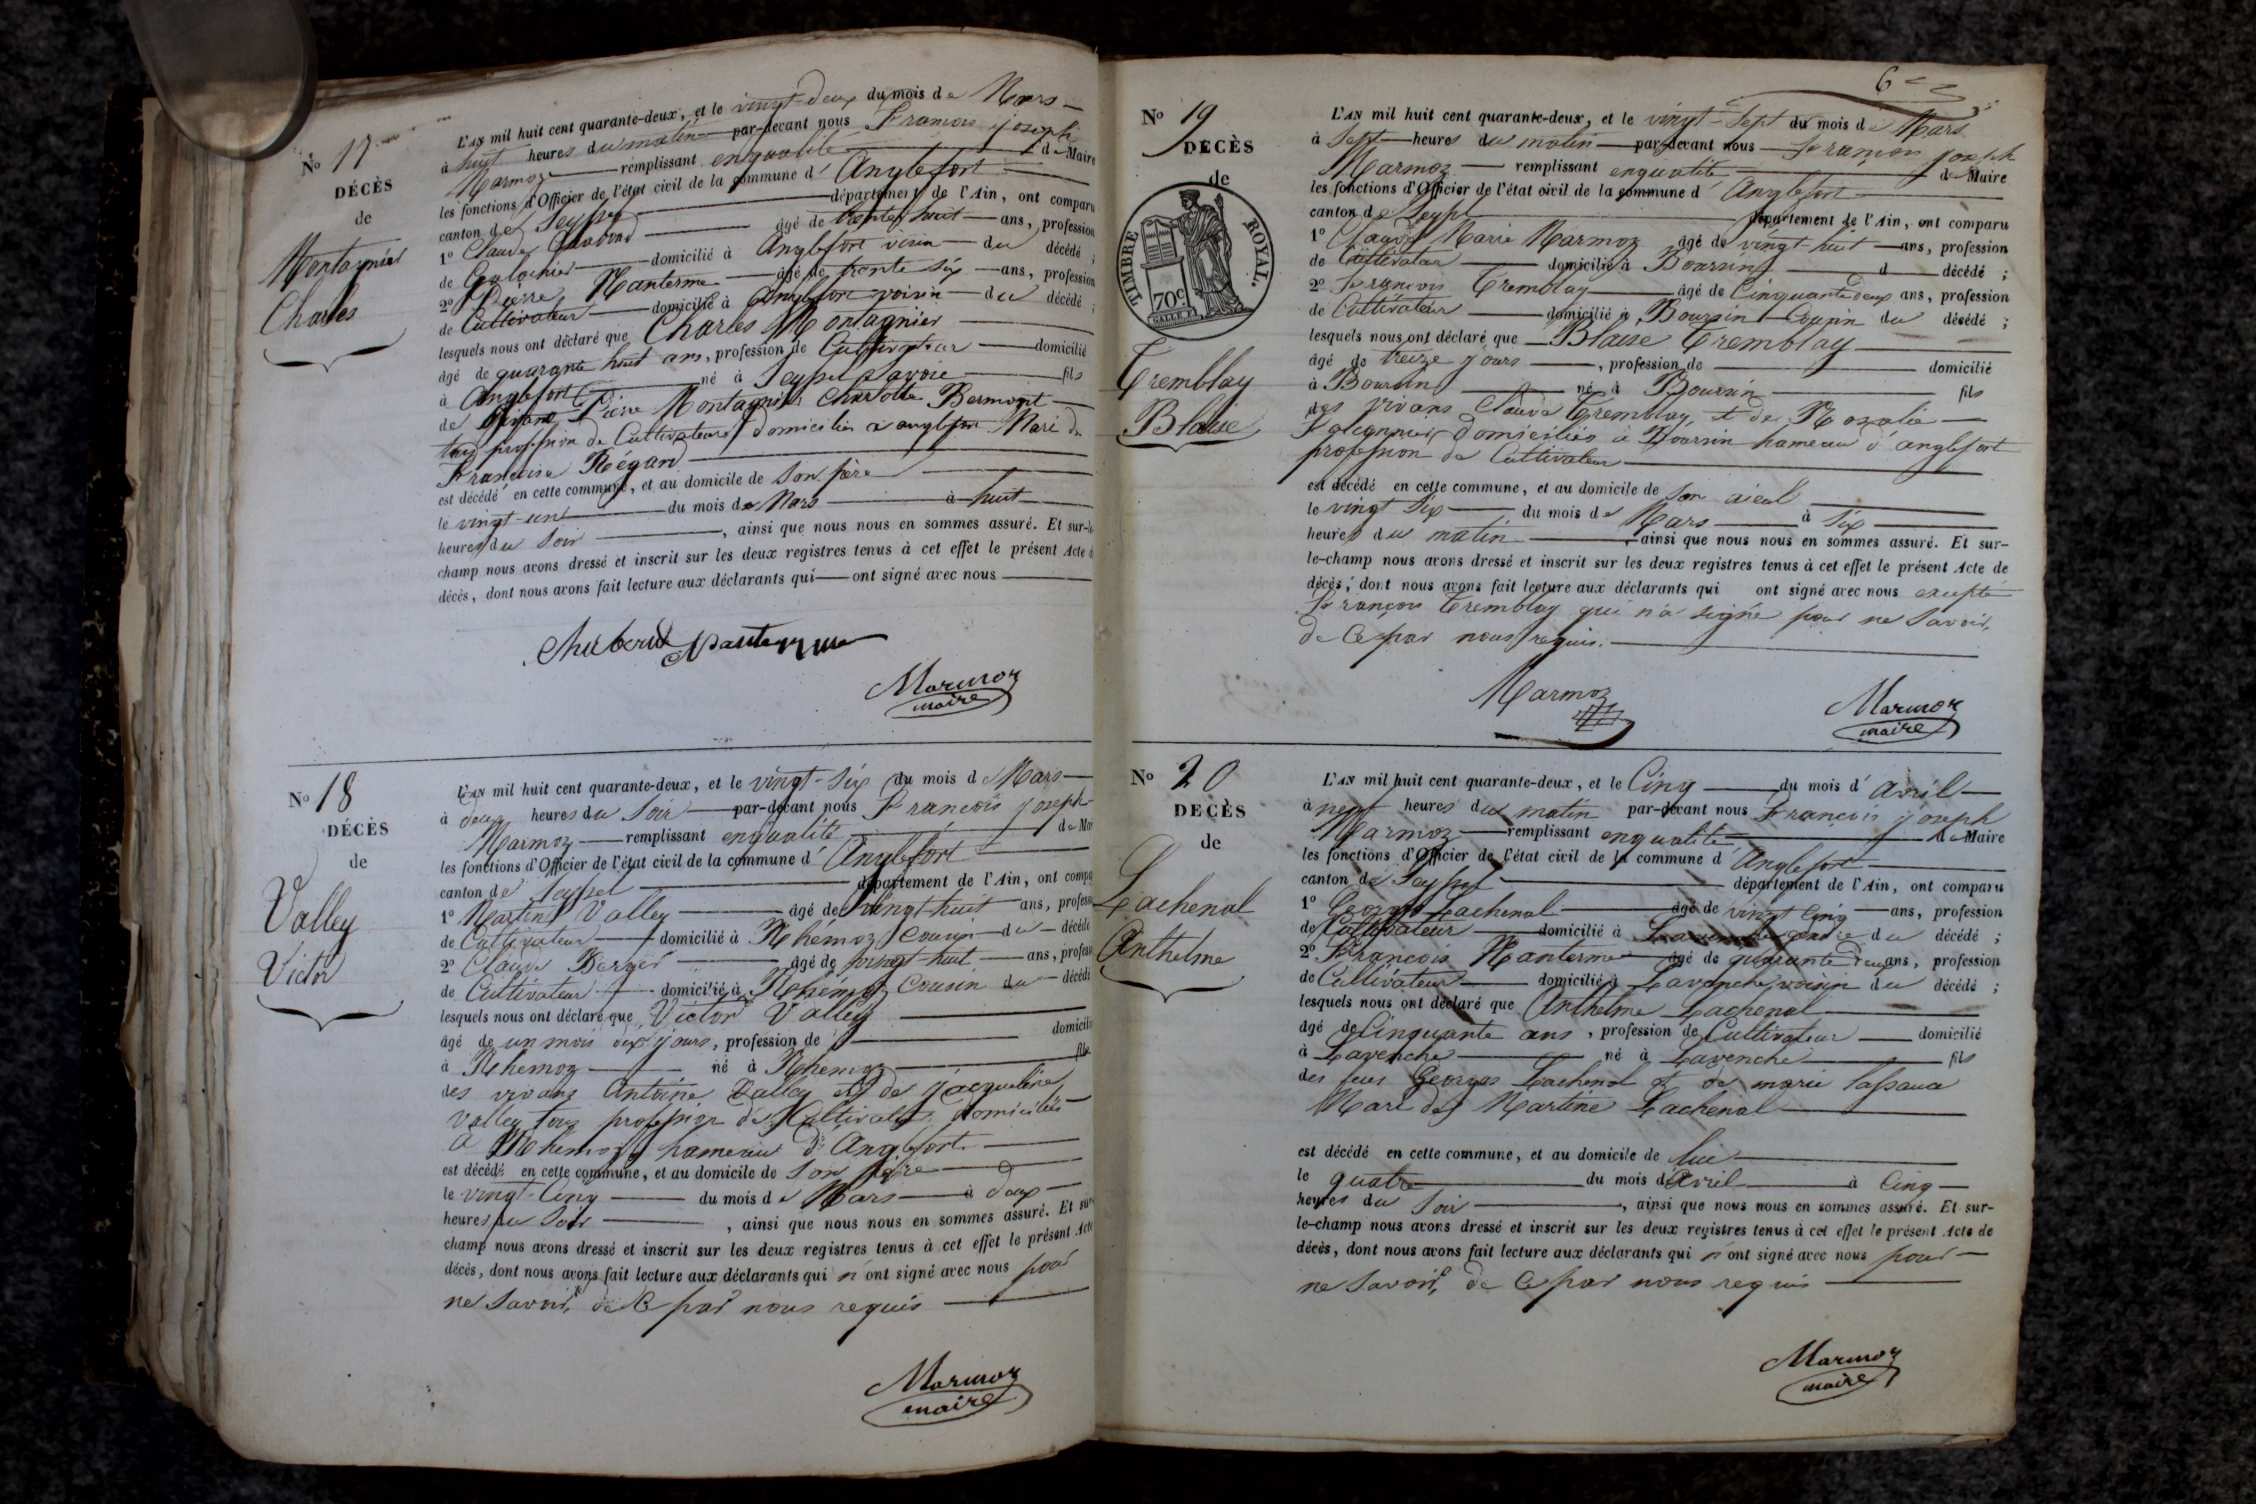 N° 17
DÉCÈS
de
Montagnier
Charles
L'AN mil huit cent quarante-deux, et le vingt-deux du mois de Mars
à huit heures du matin par-devant nous François joseph
Marmoz remplissant enqualité de Maire
les fonctions d'Officier de l'état civil de la commune d'Anglefort
canton de Seyssel département de l'Ain, ont comparu
1° Claude âgé de trente huit ans, profession
de domicilié à Anglefort voisin du décédé ;
2° Pierre Nanterme âgé de trente six ans, profession
de Cultivateur domicilié à Anglefort voisin du décédé ;
lesquels nous ont déclaré que Charles Montagnier
âgé de quarante huit ans, profession de Cultivateur domicilié
à Anglefort né à Seyssel Savoie fils
de Pierre Montagnier Charlotte Bermont
tous profession de Cultivateurs domiciliés à anglefort Mari de
Francoise Régard
est décédé en cette commune, et au domicile de son père
le vingt-un du mois de Mars à huit
heures du Soir , ainsi que nous nous en sommes assuré. Et sur-le
champ nous avons dressé et inscrit sur les deux registres tenus à cet effet le présent Acte de
décès, dont nous avons fait lecture aux déclarants qui ont signé avec nous
Nanterme
Marmoz
maire
N° 18
DÉCÈS
de
Valley
Victor
L'AN mil huit cent quarante-deux, et le vingt-six du mois de Mars
à deux heures du Soir par-devant nous François joseph
Marmoz remplissant enqualité de Mai
les fonctions d'Officier de l'état civil de la commune d'Anglefort
canton de Seyssel département de l'Ain, ont compa
1° Martin Valley âgé de vingt-huit ans, profess
de Cultivateur domicilié à Rhemoz cousin du décédé
2° Claude Berger âgé de vingt-huit ans, profess
de Cultivateur domicilié à Rhemoz Cousin du décédé
lesquels nous ont déclaré que Victor Valley
âgé de un mois dix jours, profession de domicilié
à Rhemoz né à Rhemoz fils
des vivans Antoine Valley et de jacqueline
Valley tous profession de Cultivateurs domiciliés
à Rhemoz hameau d'Anglefort
est décédé en cette commune, et au domicile de son père
le vingt-cinq du mois de Mars à deux
heures du Soir , ainsi que nous nous en sommes assuré. Et sur
champ nous avons dressé et inscrit sur les deux registres tenus à cet effet le présent Acte
décès, dont nous avons fait lecture aux déclarants qui n'ont signé avec nous pour
ne Savoir, de Ce par nous requis
Marmoz
maire
6
N° 19
DÉCÈS
de
TIMBRE ROYAL.
70 c
Tremblay
Blaise
L'AN mil huit cent quarante-deux, et le vingt-sept du mois de Mars
à Sept heures du matin par-devant nous François joseph
Marmoz remplissant enqualité de Maire
les fonctions d'Officier de l'état civil de la commune d'Anglefort
canton de Seyssel département de l'Ain, ont comparu
1° Claude Marie Marmoz âgé de vingt-huit ans, profession
de Cultivateur domicilié à Boursin d décédé ;
2° François Tremblay âgé de Cinquante deux ans, profession
de Cultivateur domicilié à Boursin Cousin du décédé ;
lesquels nous ont déclaré que Blaise Tremblay
âgé de treize jours , profession de domicilié
à Boursin né à Boursin fils
des vivans Claude Tremblay, et de Rosalie
domiciliés à Boursin hameau d'anglefort
profession de Cultivateur
est décédé en cette commune, et au domicile de son aieul
le vingt Six du mois de Mars à Six
heures du matin , ainsi que nous nous en sommes assuré. Et sur-
le-champ nous avons dressé et inscrit sur les deux registres tenus à cet effet le présent Acte de
décès, dont nous avons fait lecture aux déclarants qui ont signé avec nous excepté
François Tremblay qui n'a signé pour ne Savoir,
de Ce par nous requis.
Marmoz
Marmoz
maire
N° 20
DÉCÈS
de
Lachenal
Anthelme
L'AN mil huit cent quarante-deux, et le Cinq du mois d'avril
à neuf heures du matin par-devant nous François joseph
Marmoz remplissant enqualité de Maire
les fonctions d'Officier de l'état civil de la commune d'Anglefort
canton de Seyssel département de l'Ain, ont comparu
1° Georges Lachenal âgé de vingt Cinq ans, profession
de Cultivateur domicilié à du décédé ;
2° François Nanterme âgé de quarante deux ans, profession
de Cultivateur domicilié à Lavanche, voisin du décédé ;
lesquels nous ont déclaré que Anthelme Lachenal
âgé de Cinquante ans , profession de Cultivateur domicilié
à Lavenche né à Lavenche fils
des feus Georges Lachenal et de marie
Mari de Martine Lachenal
est décédé en cette commune, et au domicile de lui
le quatre du mois d'Avril à Cinq
heures du Soir , ainsi que nous nous en sommes assuré. Et sur-
le-champ nous avons dressé et inscrit sur les deux registres tenus à cet effet le présent Acte de
décès, dont nous avons fait lecture aux déclarants qui n'ont signé avec nous pour
ne Savoir, de Ce par nous requis
Marmoz
maire